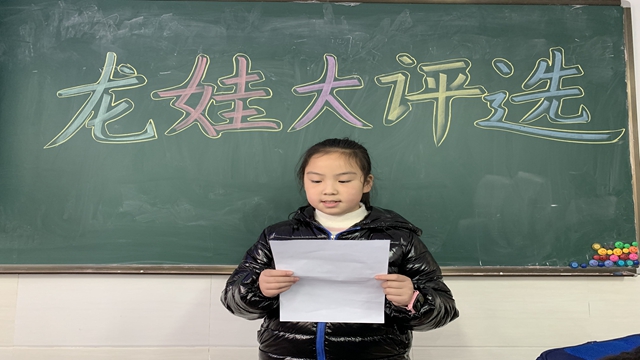 龙娃大评选